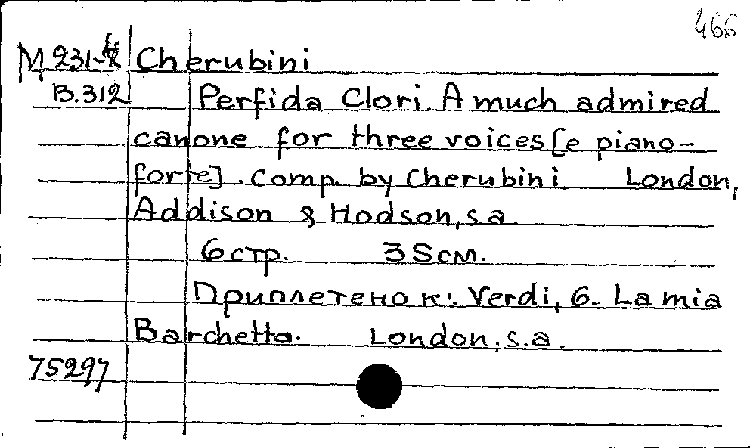 466
М 231-4 Cherubini
В.312 Perfida Clori. A much admired
canone for three voices [e piano-
forte]. Comp. by Cherubini London,
Addison & Hodson, s.a.
6 стр. 35 см.
Приплетено к: Verdi, G. La mia
Barchetta. London, s.a.
75297